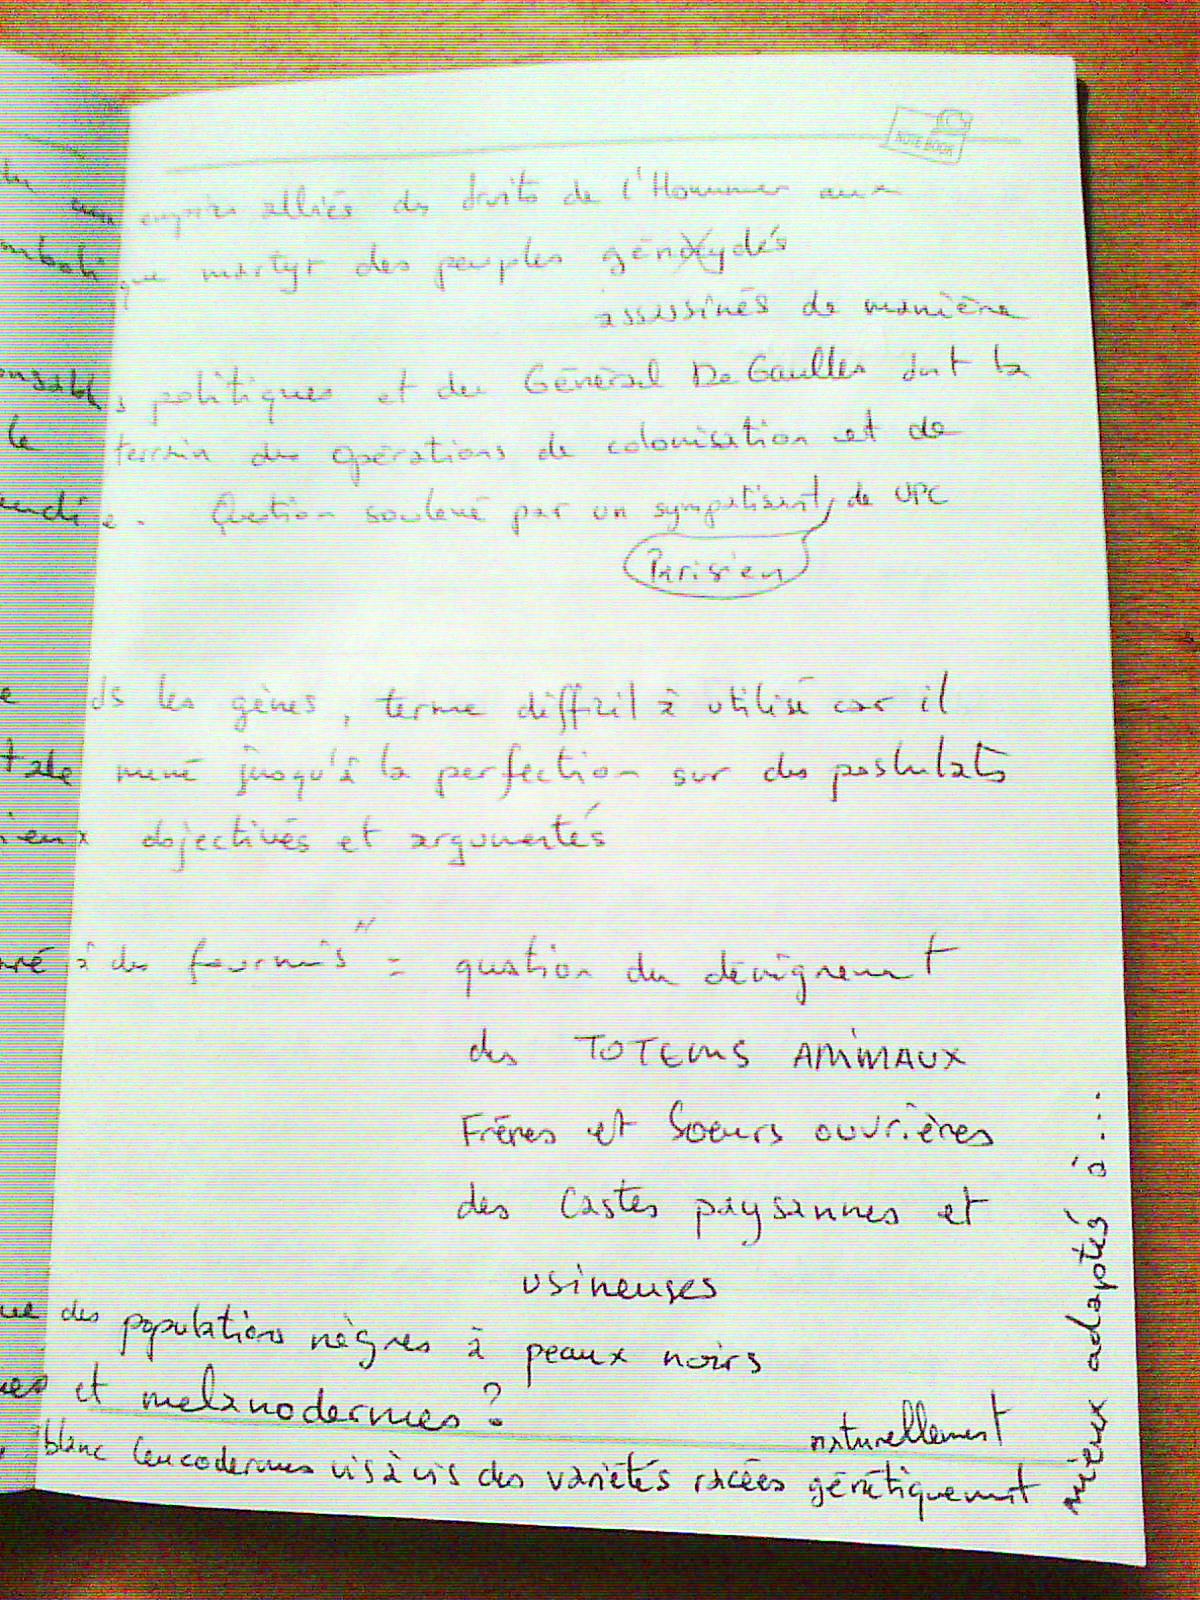 NOTE BOOK
du empires alliés des droits de l'Hommer aux
que martyr des peuples génoxydés
assassinés de manière
politiques et du Général De Gaulles dont la
le terrain des opérations de colonisation et de
Question soulevé par un sympatisant de UPC
Parisien
ds les gènes, terme difficil à utilisé car il
mené jusqu'à la perfection sur des postulats
objectivés et argumentés
à des fourmis" = question du dénigrement
des TOTEMS ANIMAUX
Frères et Soeurs ouvrières
des Castes paysannes et
usineuses
des populations nègres à peaux noirs
et melanodermes ?
naturellement
blanc leucodermes vis à vis des variétés racées génétiquement
mieux adaptés à...